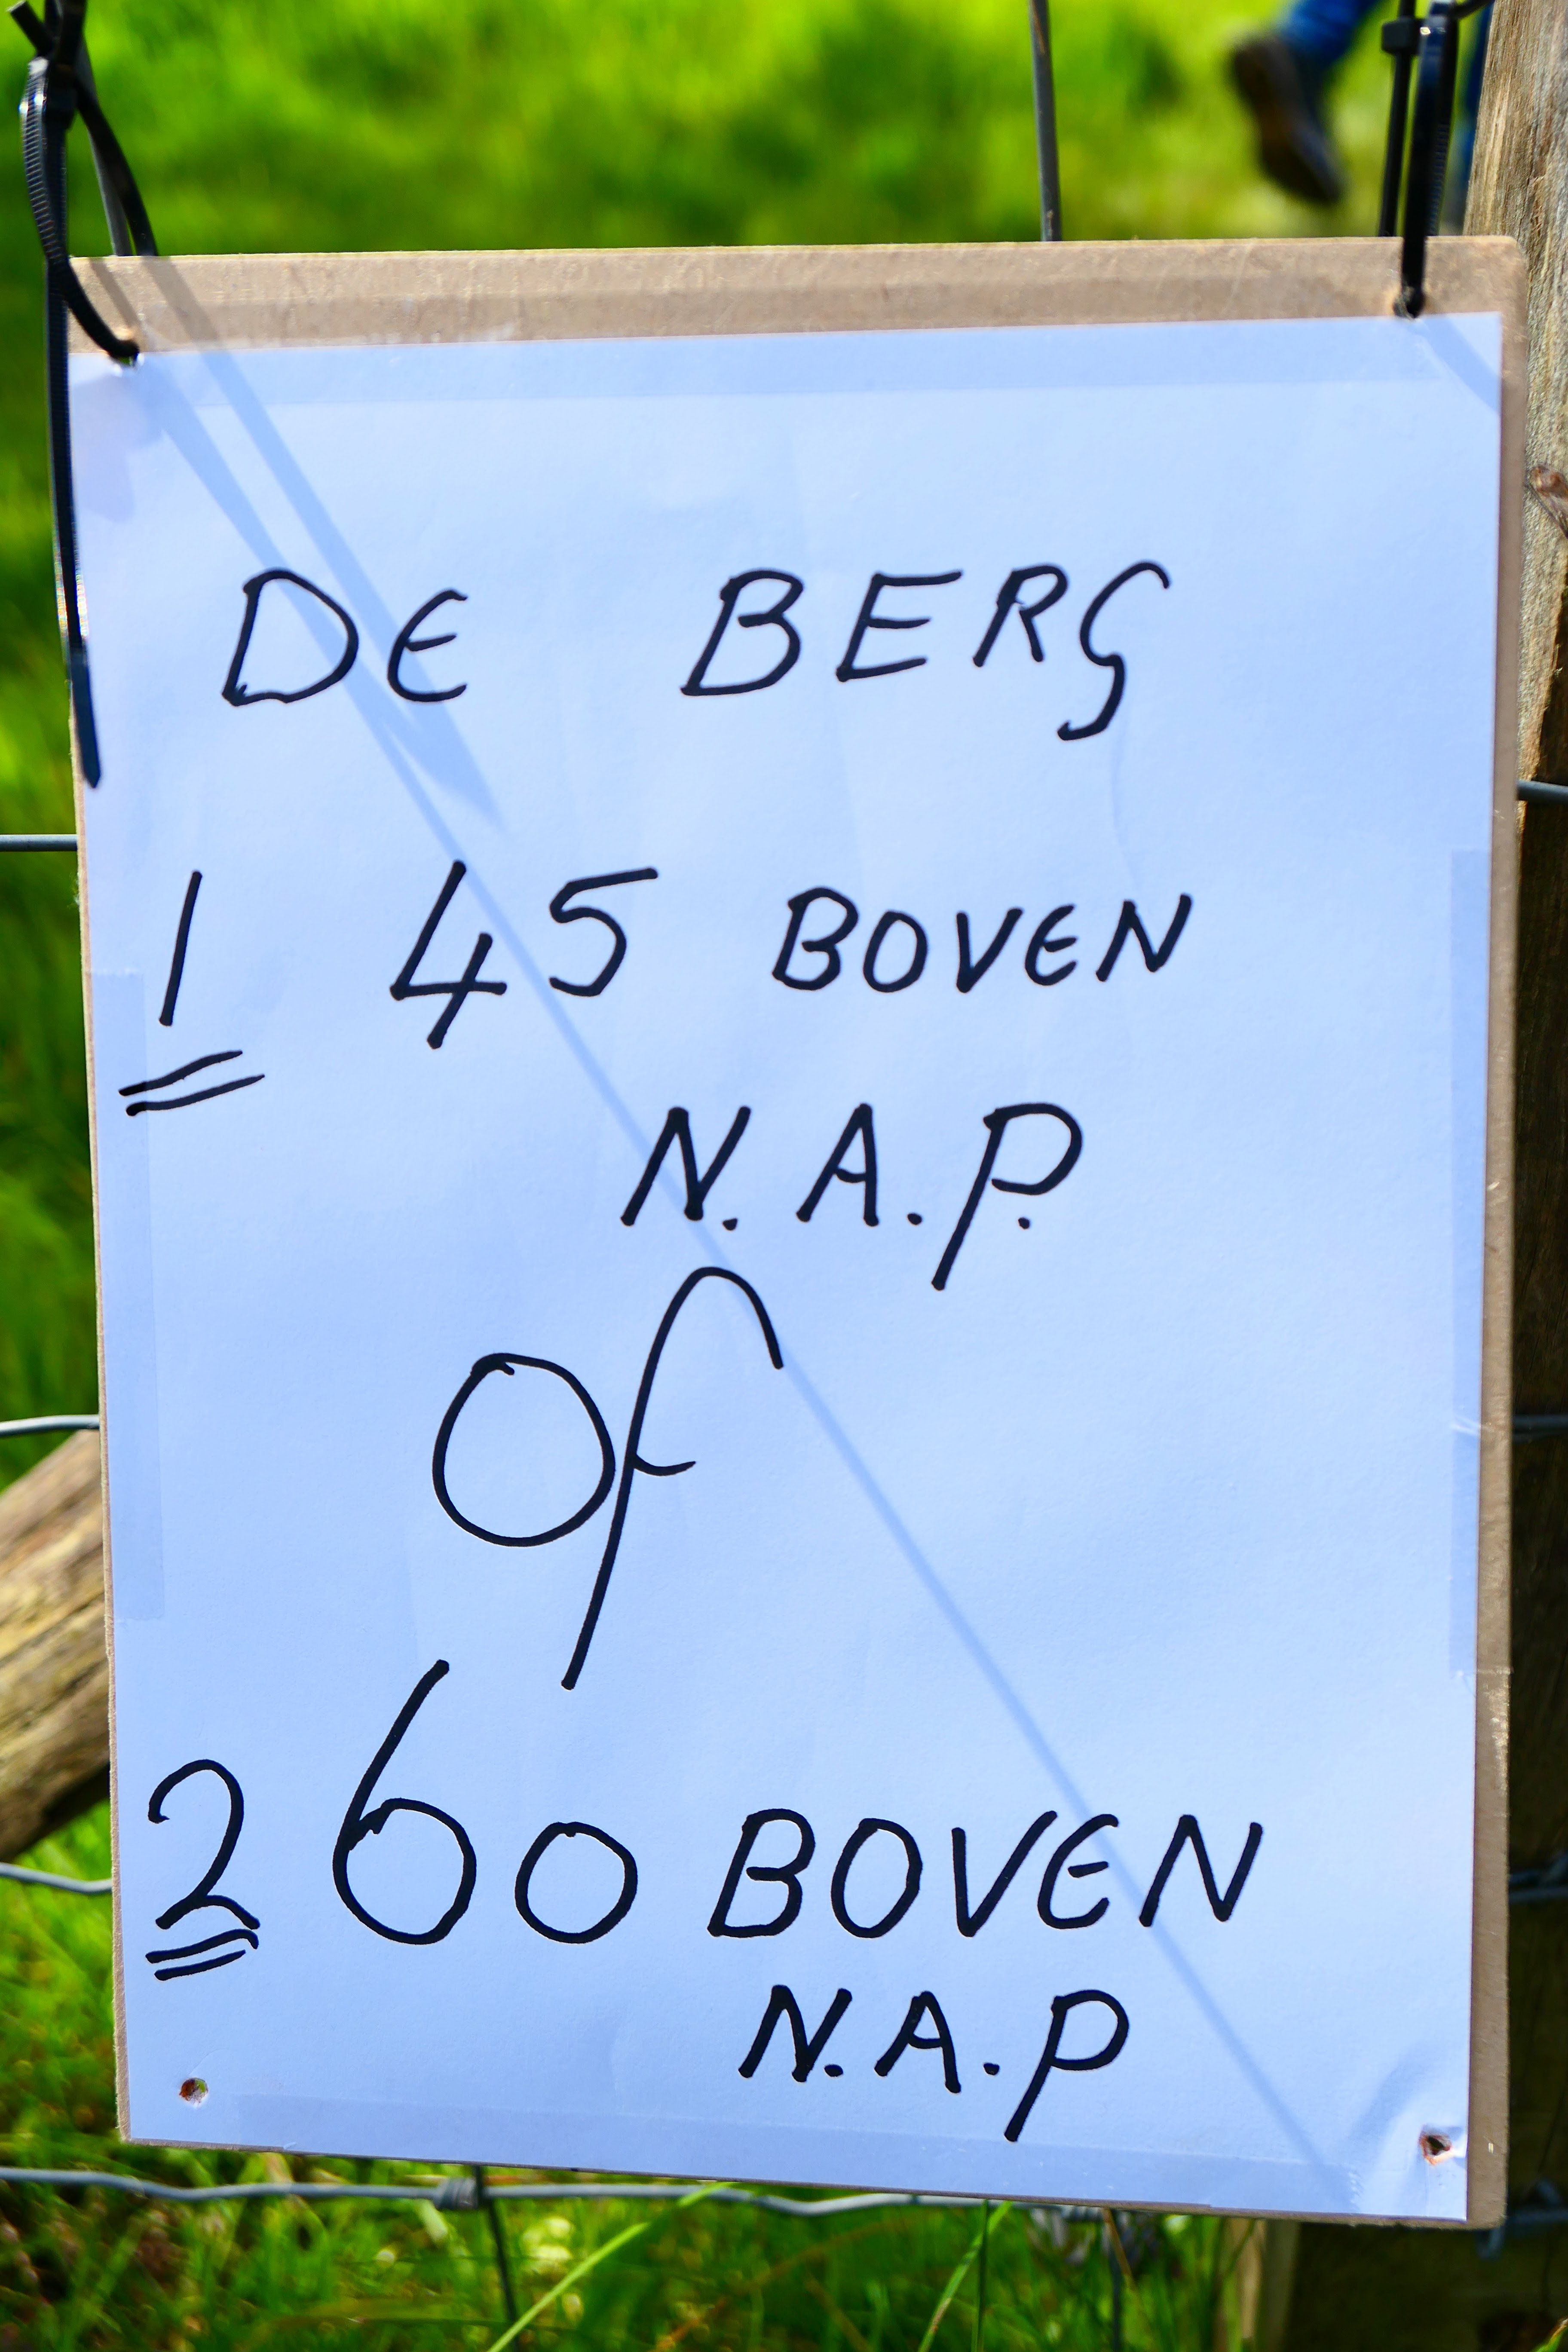 DE BERG
1 45 BOVEN
N.A.P.
Of
2 60 BOVEN
N.A.P